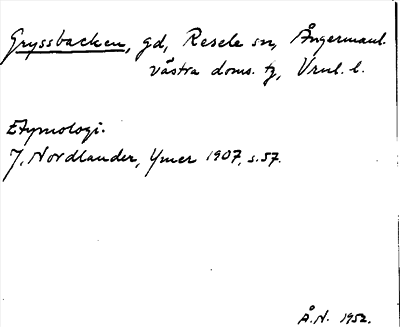 Gryssbacken, gd, Resele sn, Ångermanl.
västra doms. tg, Vrnl. l.
Etymologi.
J. Nordlander, Ymer 1907, s. 57.
Å. N. 1952.